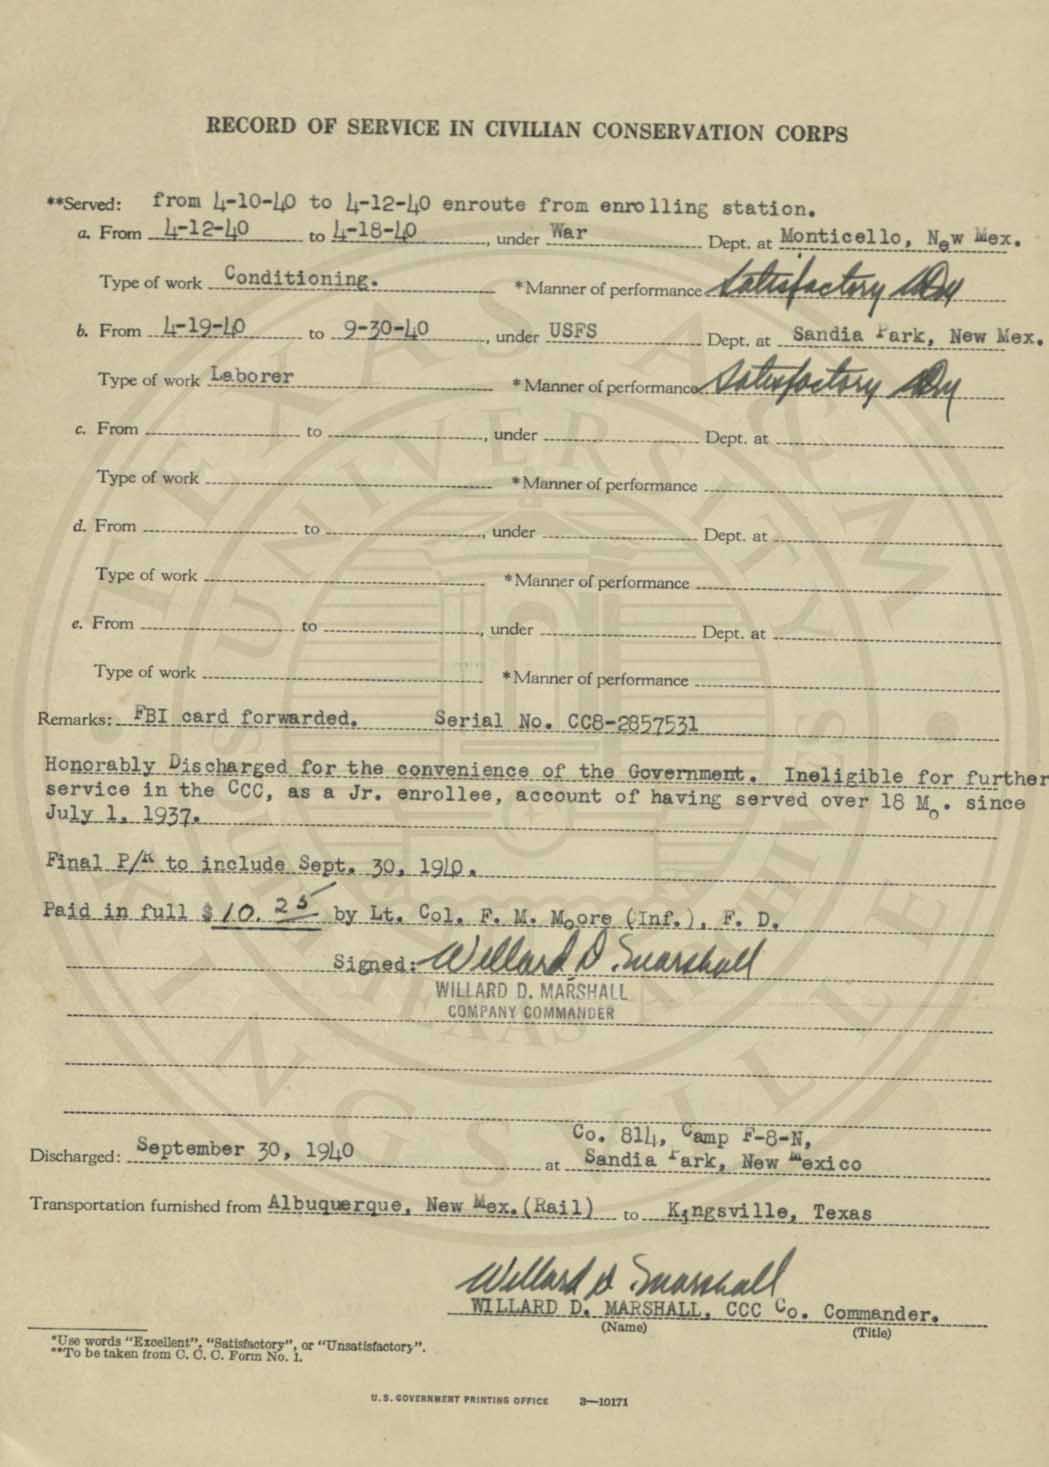 RECORD OF SERVICE IN CIVILIAN CONSERVATION CORPS
**Served: from 4-10-40 to 4-12-40 enroute from enrolling station.
a. From 4-12-40 to 4-18-40, under War Dept. at Monticello, New Mex.
Type of work Conditioning. *Manner of performance Satisfactory WDM
b. From 4-19-40 to 9-30-40, under USFS Dept. at Sandia Park, New Mex.
Type of work Laborer *Manner of performance Satisfactory WDM
c. From to , under Dept. at
Type of work *Manner of performance
d. From to , under Dept. at
Type of work *Manner of performance
e. From to , under Dept. at
Type of work *Manner of performance
Remarks: FBI card forwarded. Serial No. CC8-2857531
Honorably Discharged for the convenience of the Government. Ineligible for further
service in the CCC, as a Jr. enrollee, account of having served over 18 Mo. since
July 1, 1937.
Final P/R to include Sept. 30, 1940.
Paid in full $10.25 by Lt. Col. F. M. Moore (Inf.), F. D.
Signed: Willard D. Marshall
WILLARD D. MARSHALL
COMPANY COMMANDER
Co. 814, Camp F-8-N,
Discharged: September 30, 1940 at Sandia Park, New Mexico
Transportation furnished from Albuquerque, New Mex.(Rail) to Kingsville, Texas
Willard D. Marshall
WILLARD D. MARSHALL, CCC Co. Commander.
(Name) (Title)
*Use words "Excellent", "Satisfactory", or "Unsatisfactory".
**To be taken from C. C. C. Form No. 1.
U. S. GOVERNMENT PRINTING OFFICE 3—10171
TEXAS A&M UNIVERSITY KINGSVILLE
UNIVERSITY ARCHIVES
TEXAS